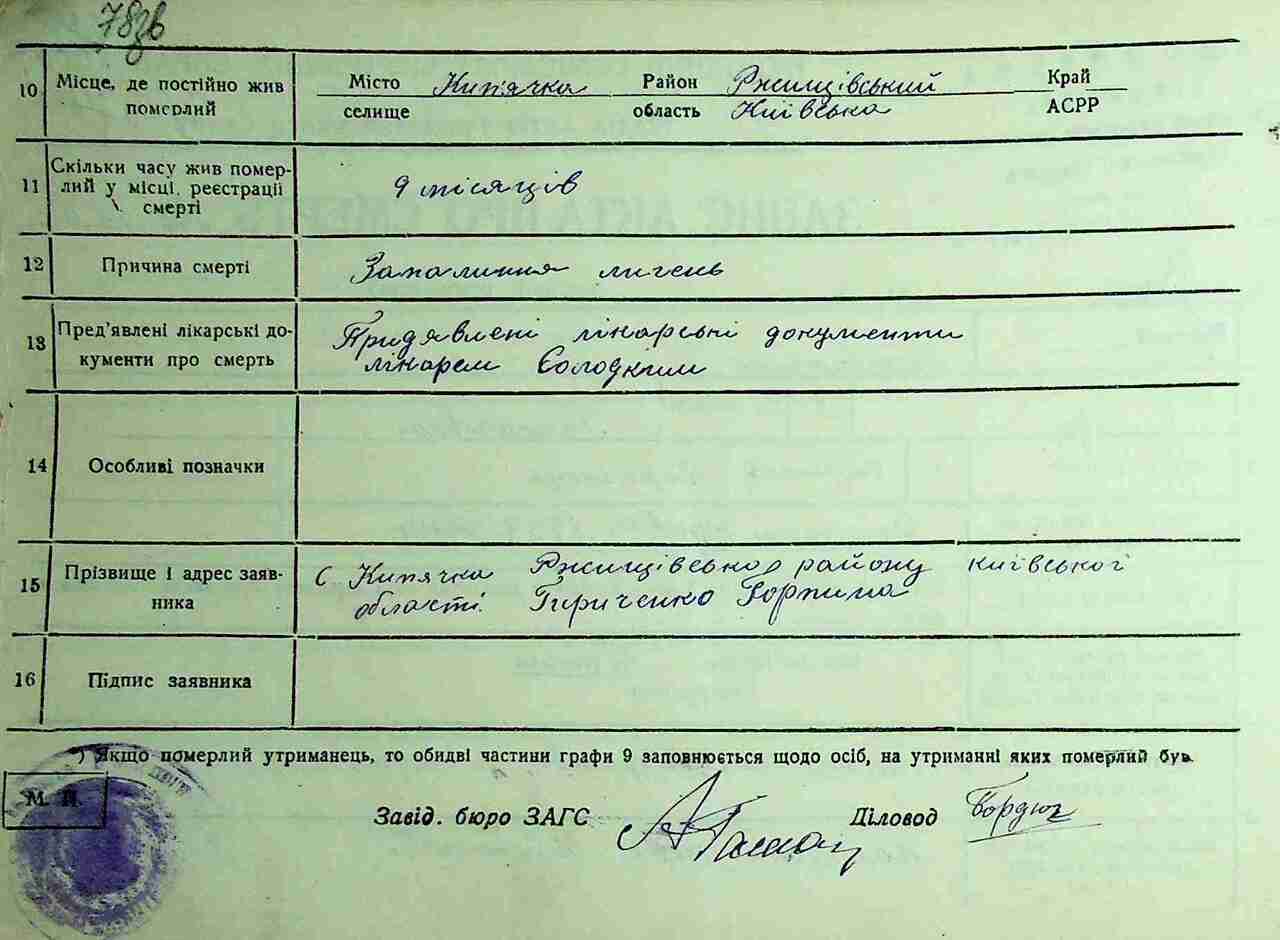 78зв
10 Місце, де постійно жив Місто Кип'ячка Район Ржищівський Край
померлий селище область Київська АСРР
11 Скільки часу жив помер-
лий у місці, реєстрації 9 місяців
смерті
12 Причина смерті Запалиння лигень
13 Пред'явлені лікарські до- Придявлені лікарські документи
кументи про смерть лікарем Солодким
14 Особливі позначки
15 Прізвище і адрес заяв- С Кип'ячка Ржищівсько району київської
ника області. Гориина
16 Підпис заявника
*) Якщо померлий утриманець, то обидві частини графи 9 заповнюється щодо осіб, на утриманні яких померлий був.
М. П.
Завід. бюро ЗАГС Діловод Бордюг